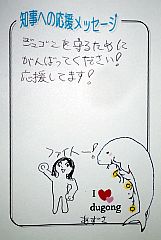 知事への応援メッセージ
ジュゴンを守るために
がんばってください!
応援してます!
ファイトー!
I ♥
dugong
あずさ